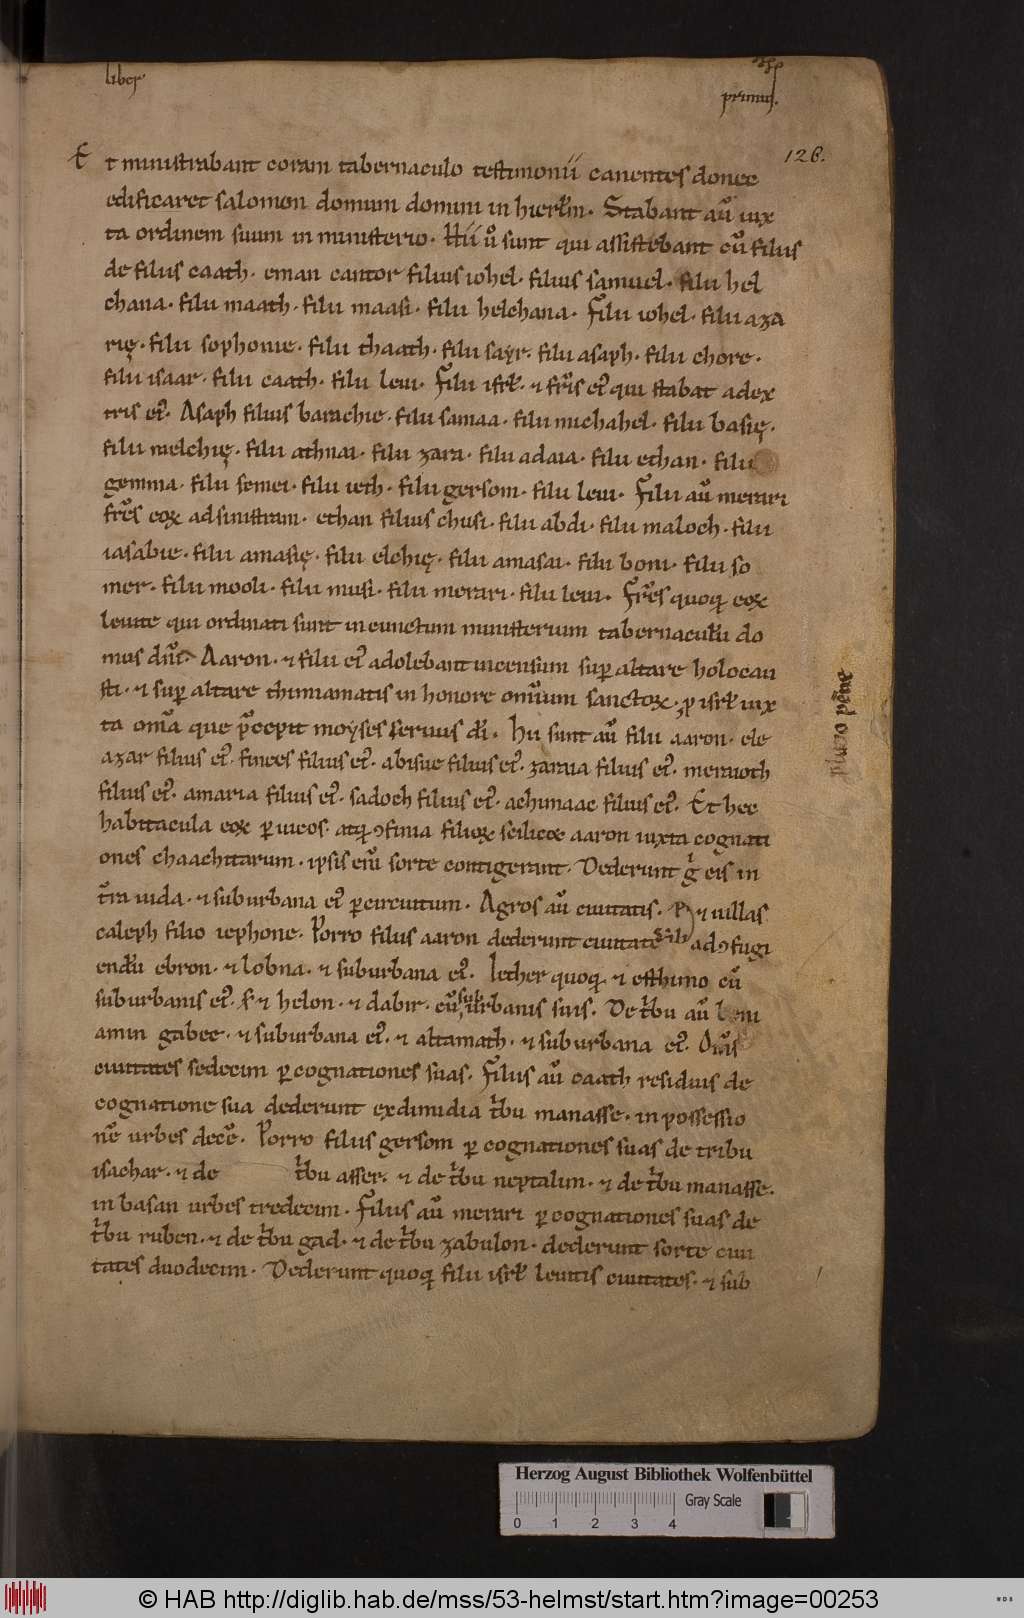 liber
primus.
126.
Et ministrabant coram tabernaculo testimonii canentes donec
edificaret salomon domum domini in hierłm. Stabant aū iux
ta ordinem suum in ministerio. Hii ů sunt qui assistebant cū filiis
de filiis caath. eman cantor filius iohel. filius samuel. filii hel
chana. filii maath. filii maasi. filii helchana. filii iohel. filii aza
rię. filii sophonie. filii thaath. filii sayr. filii asaph. filii chore.
filii isaar. filii caath. filii leui. filii isrł. ⁊ fr̄is ei᷒ qui stabat adex
tris ei᷒. Asaph filius barachie. filii samaa. filii michahel. filii basię.
filii melchię. filii athnai. filii zara. filii adaia. filii ethan. filii
gemma. filii semei. filii ieth. filii gersom. filii leui. Filii aū merari
fr̄es eoꝝ ad sinistram. ethan filius chusi. filii abdi. filii maloch. filii
iasabie. filii amasię. filii elchię. filii amasai. filii boni. filii so
mer. filii mooli. filii musi. filii merari. filii leui. Fr̄es quoq; eoꝝ
leuite qui ordinati sunt in cunctum ministerium tabernaculi do
mus dn̄i. Aaron. ⁊ filii ei᷒ adolebant incensum suꝑ altare holocau
sti. ⁊ suꝑ altare thimiamatis in honore omnium sanctoꝝ. ꝓ isrł iux
ta om̄a que p̄cepit moyses seruus di. Hii sunt aū filii aaron. ele
azar filius ei᷒. finees filius ei᷒. abisue filius ei᷒. zaraia filius ei᷒. meraioth
filius ei᷒. amaria filius ei᷒. sadoch filius ei᷒. achimaac filius ei᷒. Et hec
habitacula eoꝝ ꝑ uicos. atq; ꝯfinia filioꝝ scilicet aaron iuxta cognati
ones chaachitarum. ipsis eni sorte contigerant. Dederunt g̊ eis in
t̄ra iuda. ⁊ suburbana ei᷒ ꝑ circuitum. Agros aū ciuitatis. ⁊ uillas
caleph filio iephone. Porro filiis aaron dederunt ciuitate ad ꝯfugi
endū ebron. ⁊ lobna. ⁊ suburbana ei᷒. Iether quoq; ⁊ esthimo cū
suburbanis ei᷒. s; ⁊ helon. ⁊ dabir. cū suburbanis suis. De tͥbu aū beni
amin gabee. ⁊ suburbana ei᷒. ⁊ altamath. ⁊ suburbana ei᷒. Om̄s
ciuitates sedecim ꝑ cognationes suas. Filiis aū caath residuis de
cognatione sua dederunt ex dimidia tͥbu manasse. in possessio
nē urbes decē. Porro filiis gersom ꝑ cognationes suas de tribu
isachar. ⁊ de tͥbu asser. ⁊ de tͥbu neptalim. ⁊ de tͥbu manasse.
in basan urbes tredecim. Filiis aū merari ꝑ cognationes suas de
tͥbu ruben. ⁊ de tͥbu gad. ⁊ de tͥbu zabulon. dederunt sorte ciui
tates duodecim. Dederunt quoq; filii isrł leuitis ciuitates. ⁊ sub
Herzog August Bibliothek Wolfenbüttel
Gray Scale
0 1 2 3 4
© HAB http://diglib.hab.de/mss/53-helmst/start.htm?image=00253